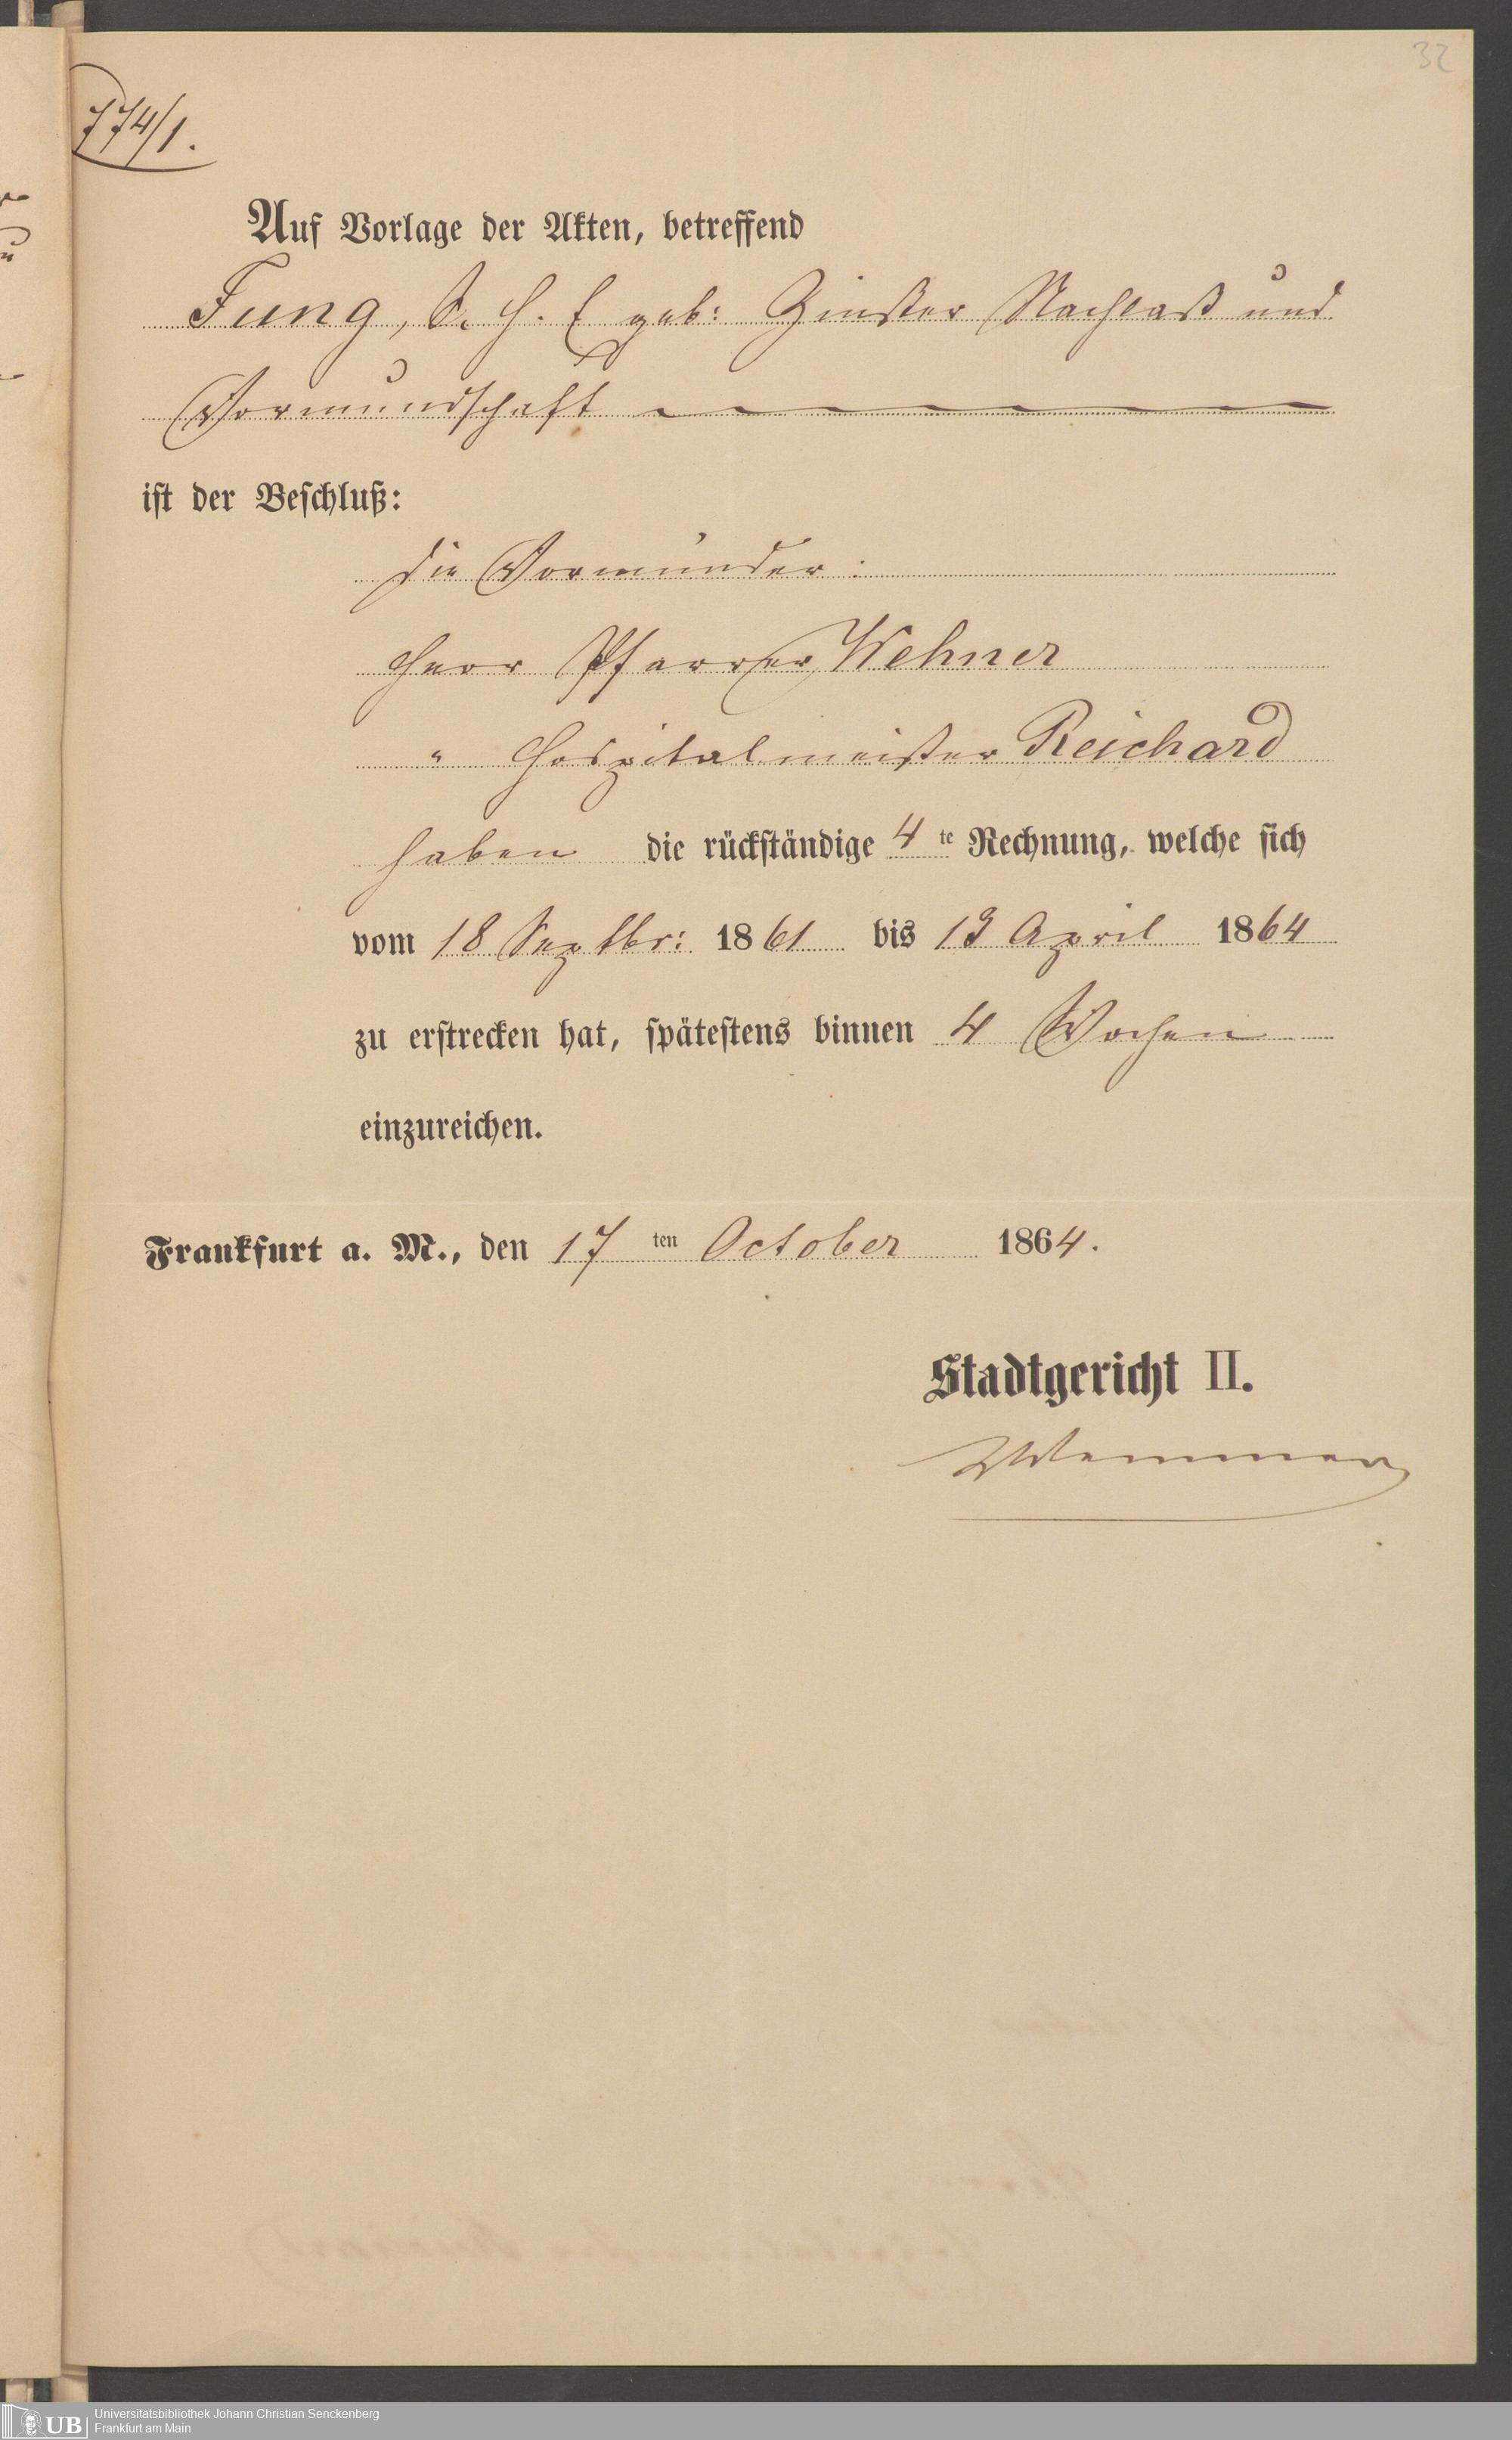 32
774/1.
Auf Vorlage der Akten, betreffend
Fung, S. H. E geb: Zinßer Nachlaß und
Vormundschaft
ist der Beschluß:
die Vormünder:
Herr Pfarrer Wehner
" Hospitalmeister Reichard
haben die rückständige 4 te Rechnung, welche sich
vom 18 Septbr: 1861 bis 13 April 1864
zu erstrecken hat, spätestens binnen 4 Wochen
einzureichen.
Frankfurt a. M., den 17 ten October 1864.
Stadtgericht II.
UB
Universitätsbibliothek Johann Christian Senckenberg
Frankfurt am Main